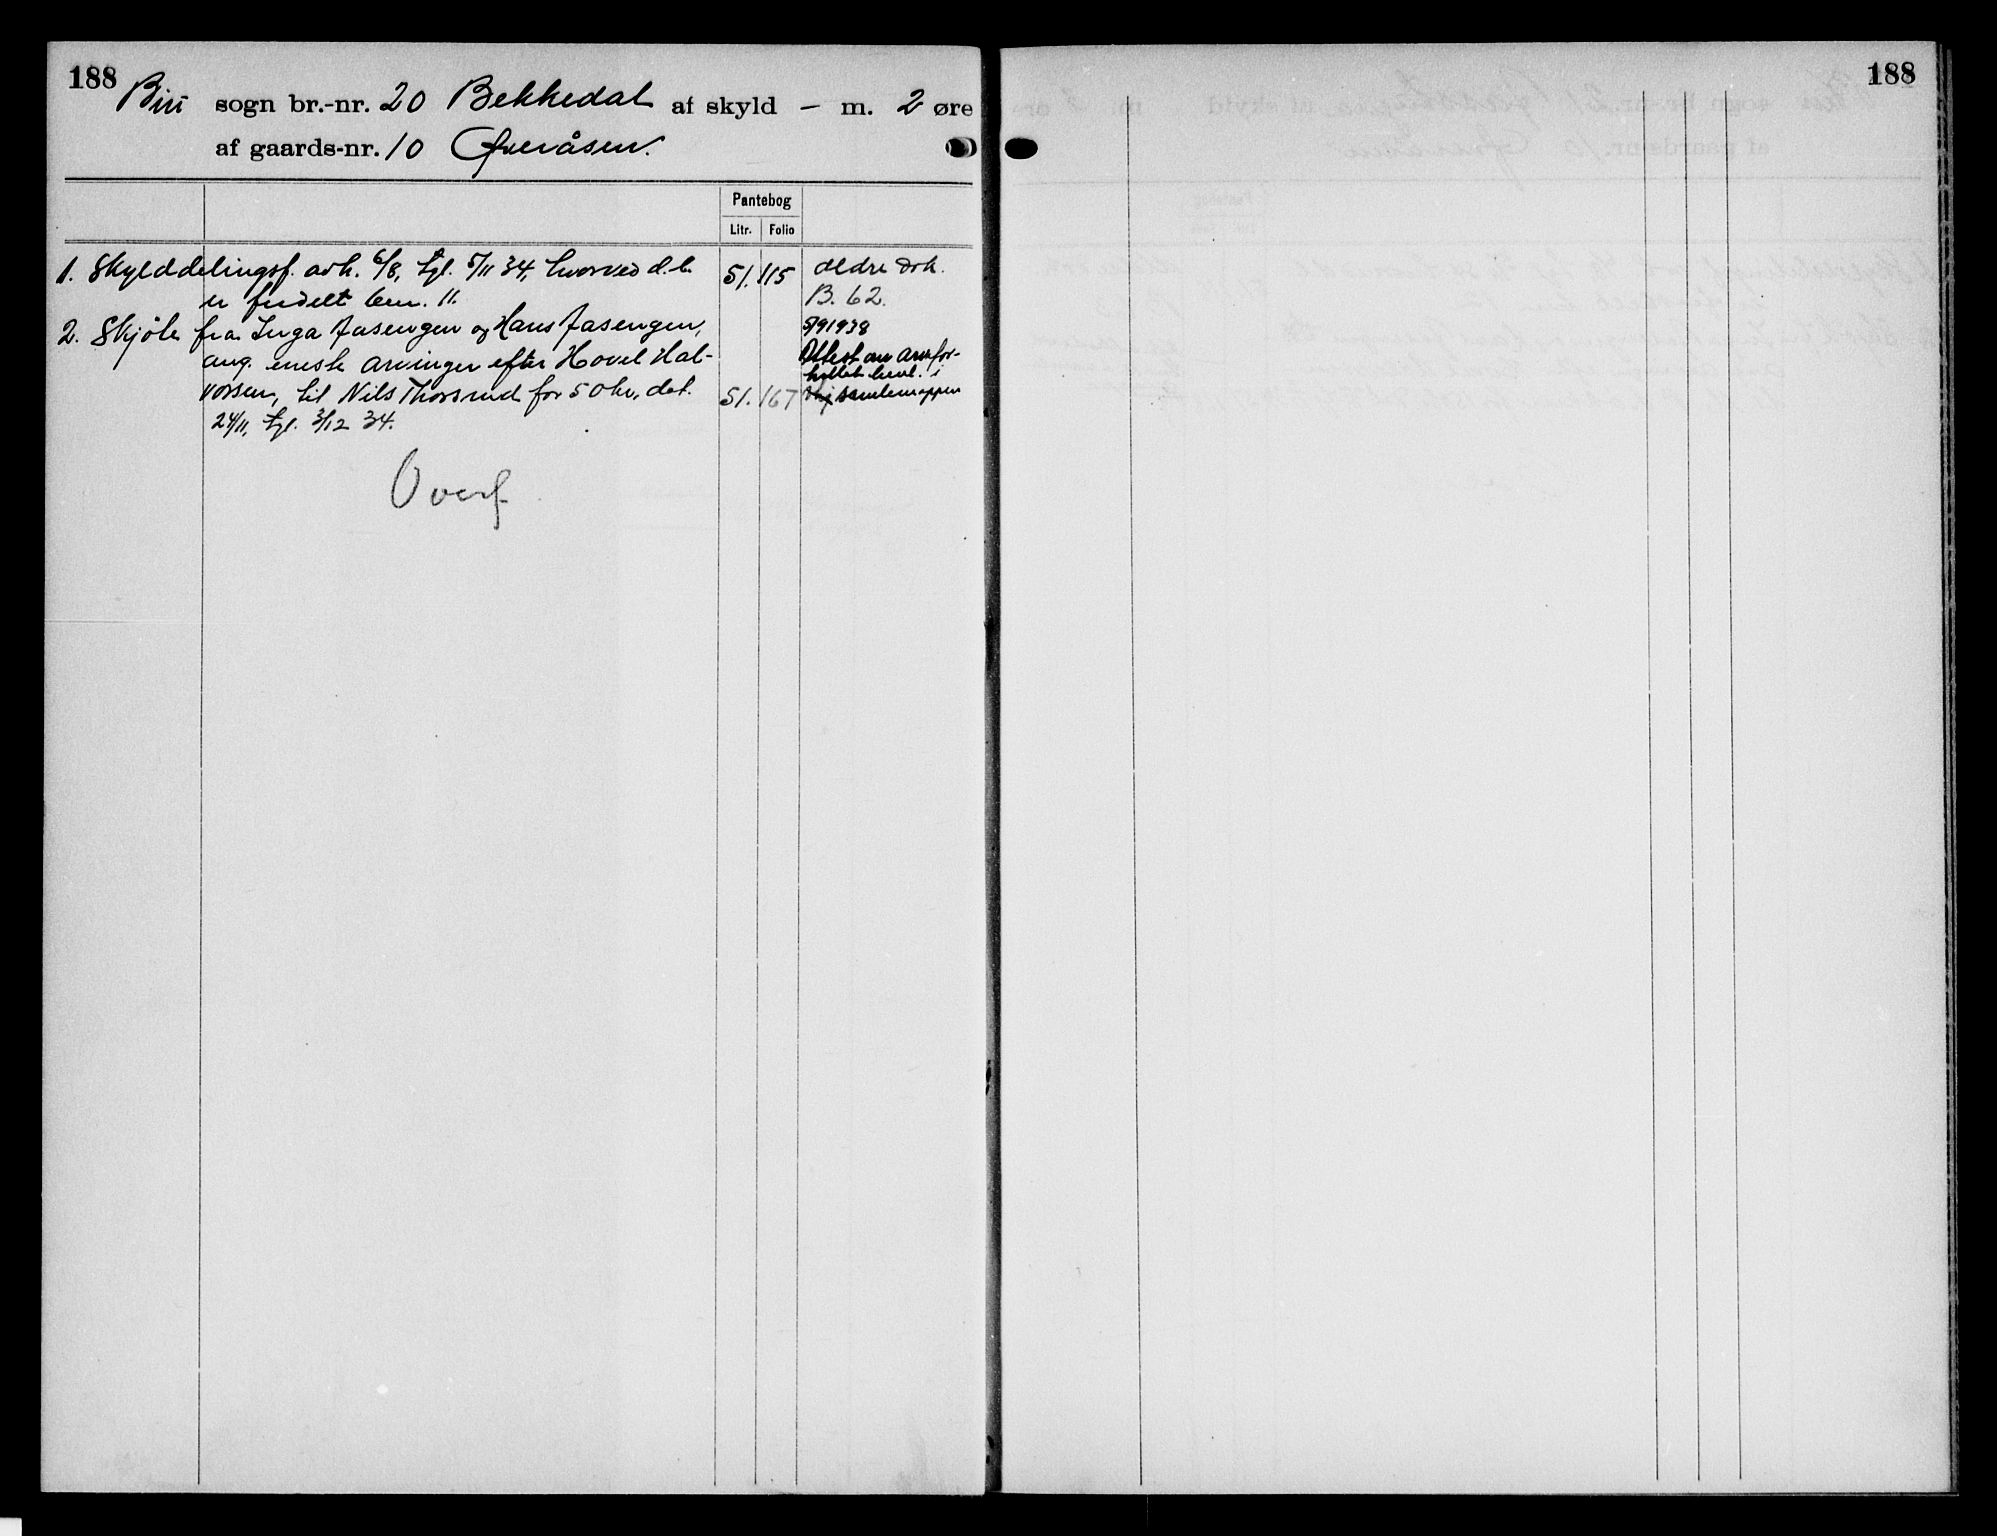 188
Biri sogn br.-nr. 20 Bekkedal af skyld – m. 2 øre
af gaards-nr. 10 Øveråsen.
Pantebog
Litr. Folio
1. Skylddelingsf. avh. 6/8, tgl. 5/11 34, hvorved d.b. 51. 115 ældre dok.
er fradelt bnr. 11. B. 62.
2. Skjöte fra Inga Aasengen og Hans Aasengen, 5/9 1938
ang. eneste arvinger efter Hovel Hal- Attest om arvefor-
holdet i
vorsen, til Nils Thorsrud for 50 kr., dat. 51. 167 samlemappen
24/11, tgl. 3/12 34.
Overf.
188